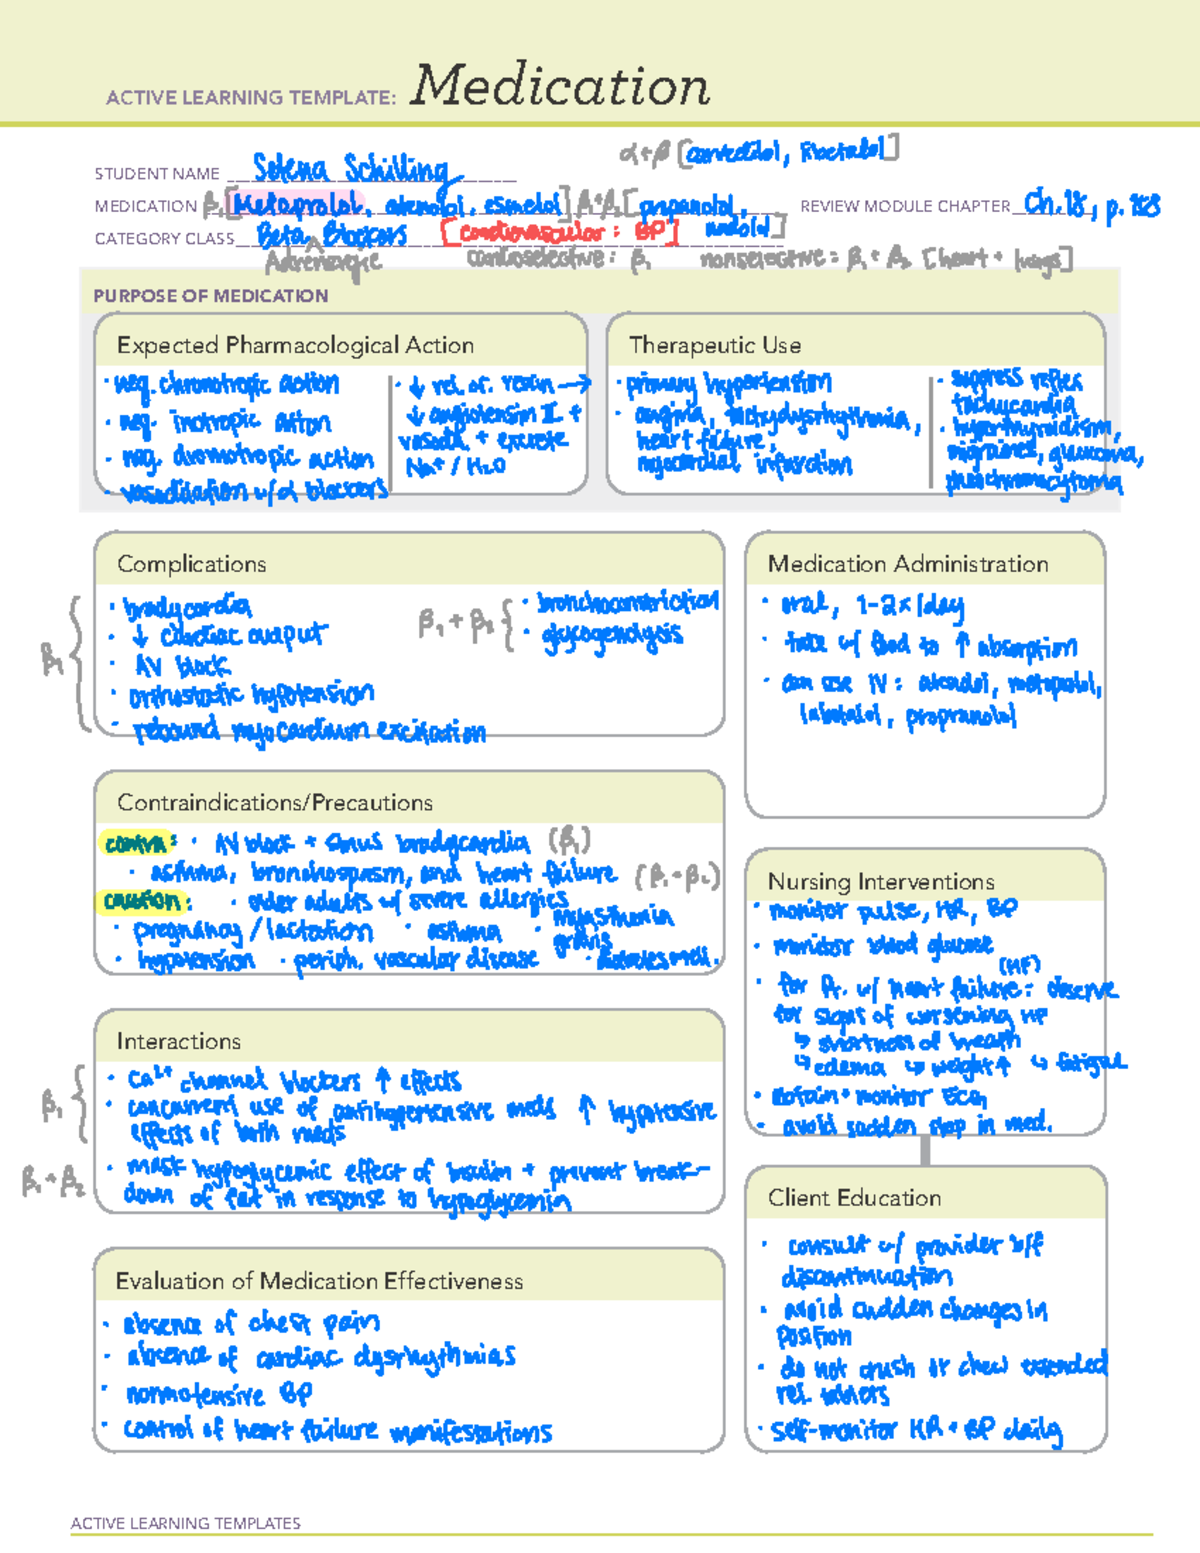 ACTIVE LEARNING TEMPLATE: Medication
α+β [carvedilol, labetalol]
STUDENT NAME Selena Schilling
MEDICATION β₁[Metoprolol, atenolol, esmolol] β₁+β₂[propanolol,
nadolol]
REVIEW MODULE CHAPTER Ch. 18, p.
CATEGORY CLASS Beta ^ Blockers [cardiovascular: BP]
Adrenergic cardioselective: β₁ nonselective = β₁ + β₂ [heart + lungs]
PURPOSE OF MEDICATION
Expected Pharmacological Action
· neg. chronotropic action
· neg. inotropic action
· neg. dromotropic action
· vasodilation w/α blockers
· ↓ rel. of. renin →
↓ angiotensin II +
vasodil. + excrete
Na⁺ / H₂O
Therapeutic Use
· primary hypertension
· angina, tachydysrhythmia,
heart failure,
myocardial infarction
· suppress reflex
tachycardia
· hyperthyroidism,
migraines, glaucoma,
pheochromocytoma
Complications
β₁
· bradycardia
· ↓ cardiac output
· AV block
· orthostatic hypotension
· rebound myocardium excitation
β₁ + β₂
· bronchoconstriction
· glycogenolysis
Contraindications/Precautions
contra: · AV block + sinus bradycardia (β₁)
· asthma, bronchospasm, and heart failure (β₁+β₂)
caution: · older adults w/ severe allergies
· pregnancy / lactation · asthma · myasthenia
gravis
· hypotension · periph. vascular disease · diabetes mell.
Interactions
β₁
· Ca²⁺ channel blockers ↑ effects
· concurrent use of antihypertensive meds ↑ hypotensive
effects of both meds
β₁ + β₂
· mask hypoglycemic effect of insulin + prevent break-
down of fat in response to hypoglycemia
Evaluation of Medication Effectiveness
· absence of chest pain
· absence of cardiac dysrhythmias
· normotensive BP
· control of heart failure manifestations
Medication Administration
· oral, 1-2x/day
· take w/ food to ↑ absorption
· can use IV: atenolol, metoprolol,
labetalol, propranolol
Nursing Interventions
· monitor pulse, HR, BP
· monitor blood glucose
(HF)
· for pt. w/ heart failure: observe
for signs of worsening HF
↳ shortness of breath
↳ edema ↳ weight↑ ↳ fatigue
· obtain + monitor ECG
· avoid sudden stop in med.
Client Education
· consult w/ provider b/f
discontinuation
· avoid sudden changes in
position
· do not crush or chew extended
rel. tablets
· self-monitor HR + BP daily
ACTIVE LEARNING TEMPLATES